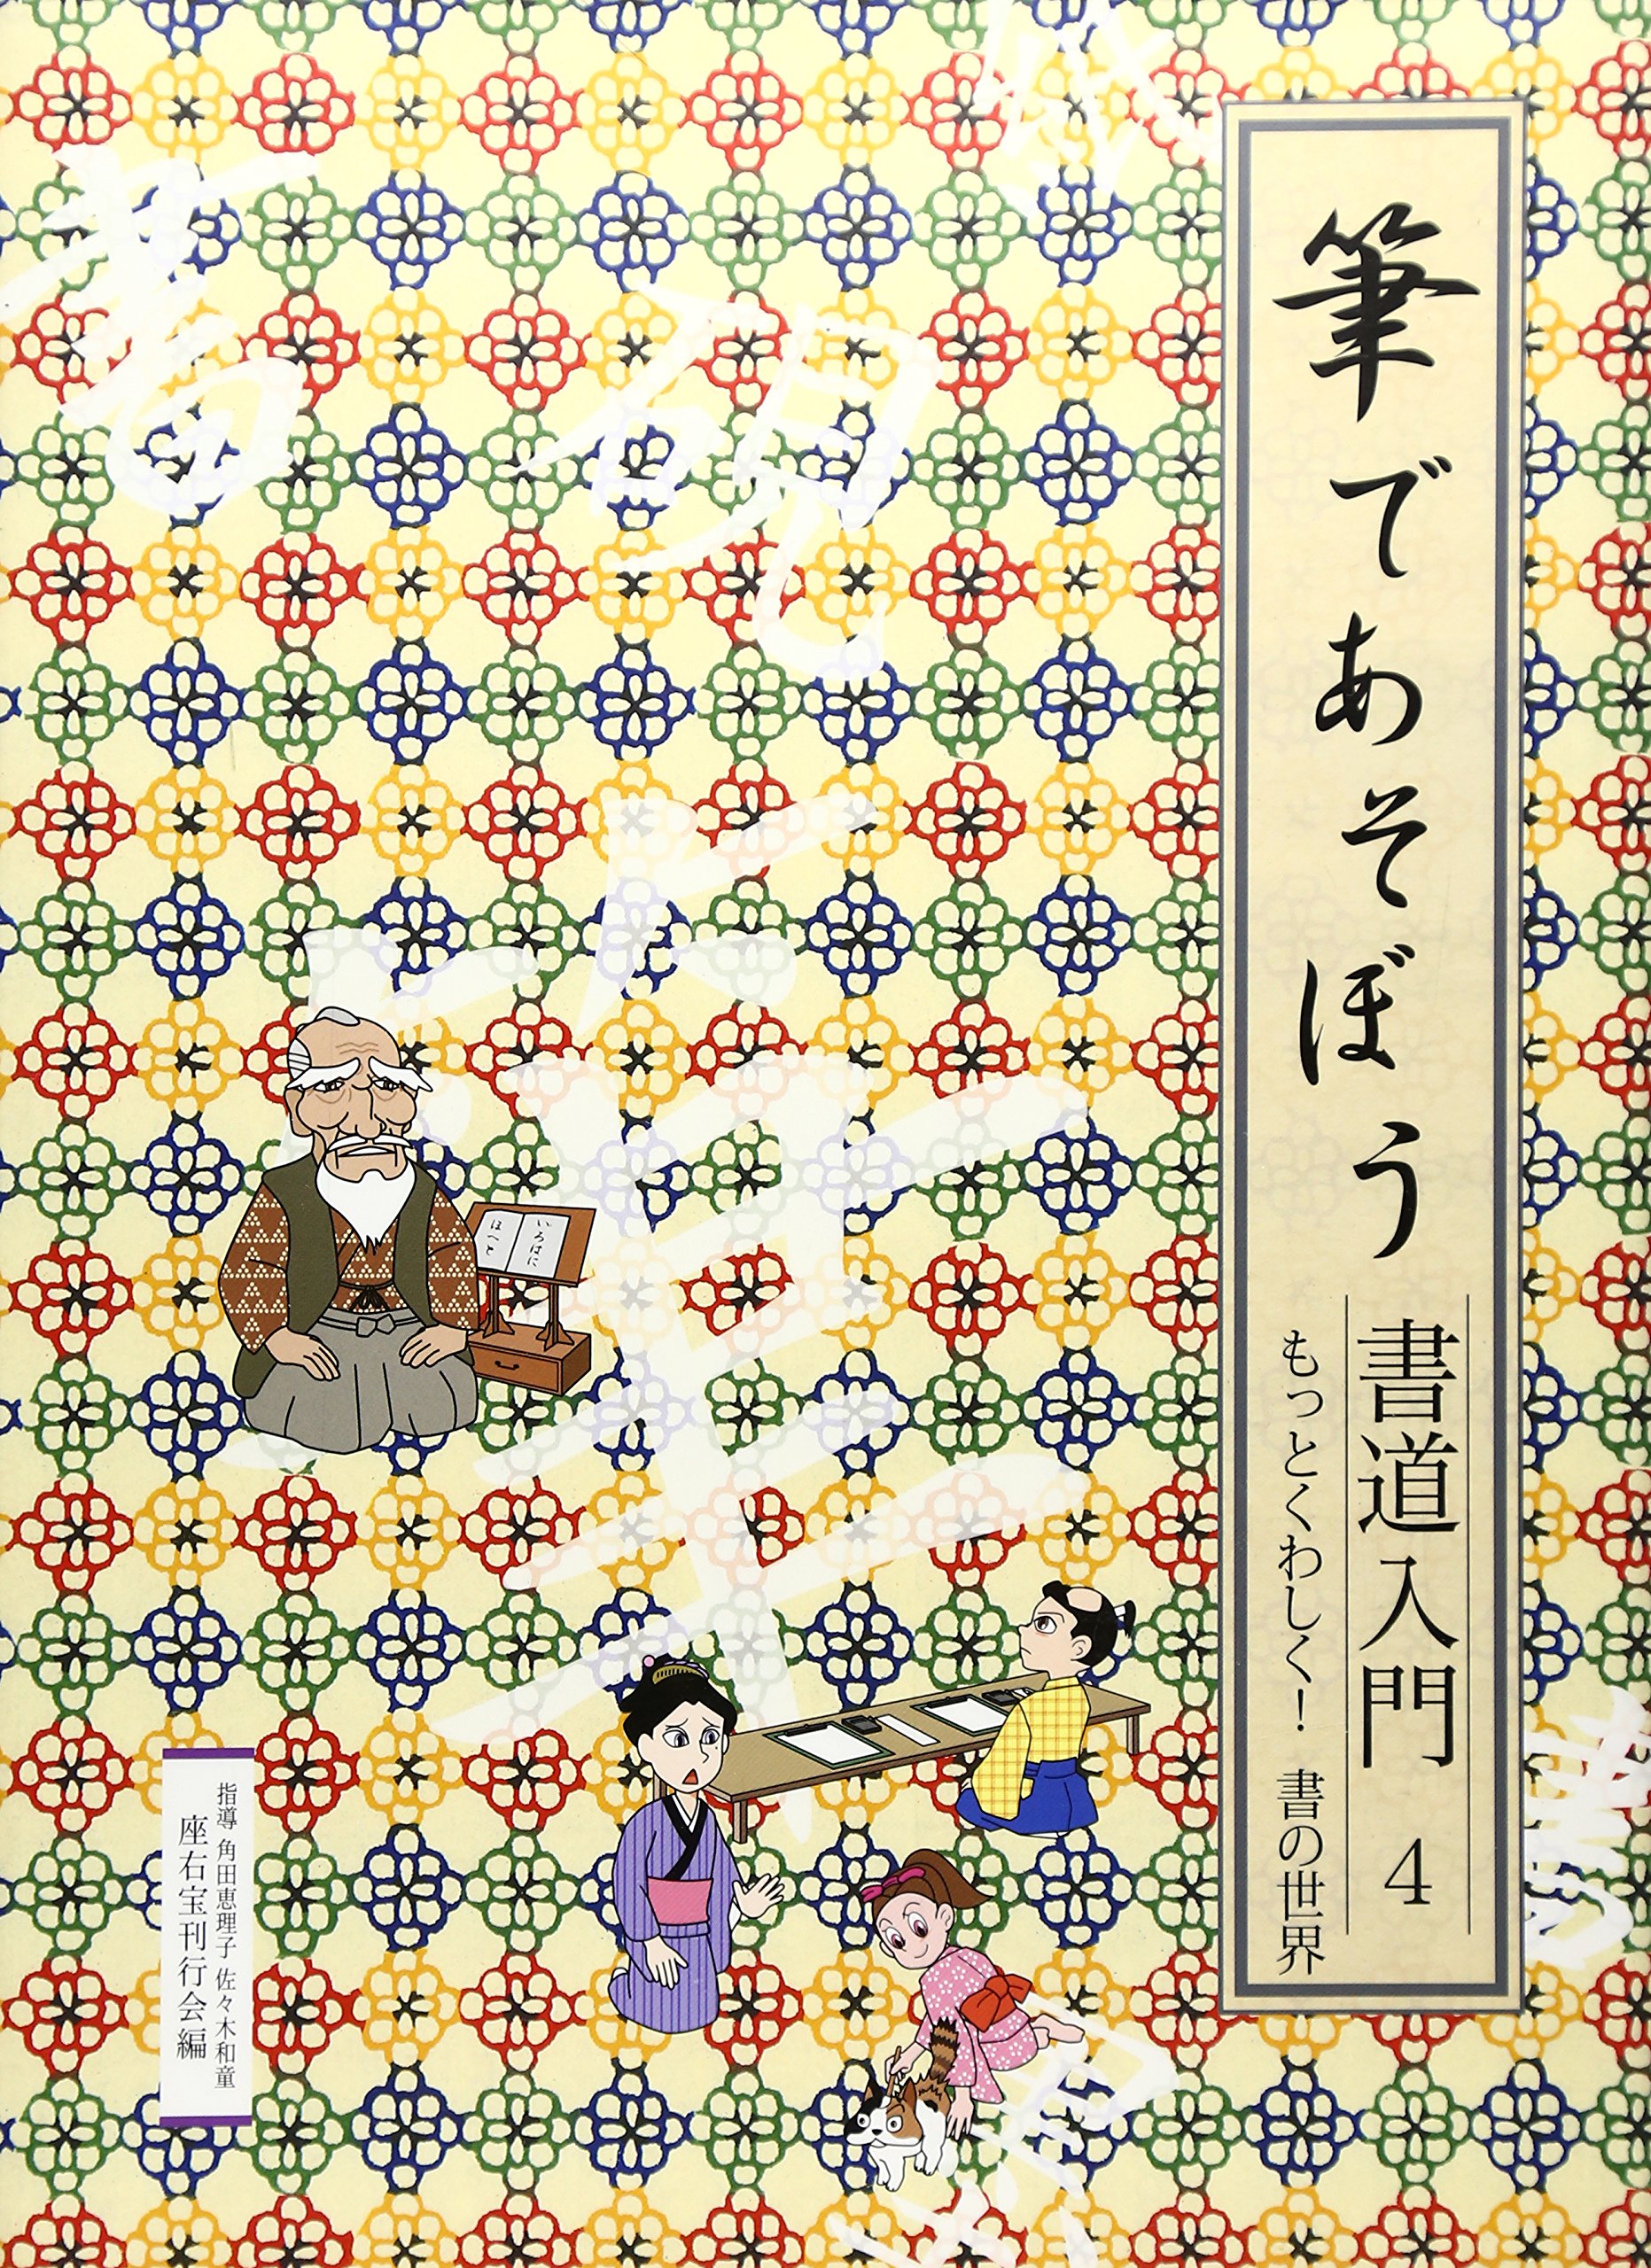 筆であそぼう
書道入門 4
もっとくわしく! 書の世界
紙
硯
書
筆
墨
書
いろはに
ほへと
指導 角田恵理子 佐々木和童
座右宝刊行会編